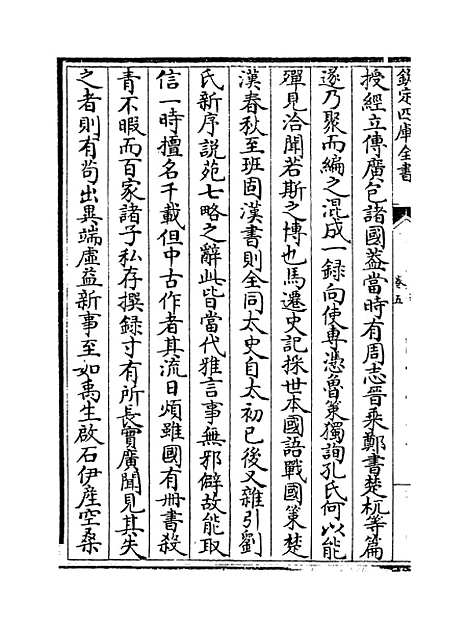 欽定四庫全書
卷五
授經立傳廣包諸國蓋當時有周志晉乘鄭書楚杌等篇
遂乃聚而編之混成一録向使專憑魯策獨詢孔氏何以能
殫見洽聞若斯之博也馬遷史記採世本國語戰國策楚
漢春秋至班固漢書則全同太史自太初已後又雜引劉
氏新序説苑七略之辭此皆當代雅言事無邪僻故能取
信一時擅名千載但中古作者其流日煩雖國有冊書殺
青不暇而百家諸子私存撰録寸有所長實廣聞見其失
之者則有茍出異端虛益新事至如禹生啟石伊産空桑